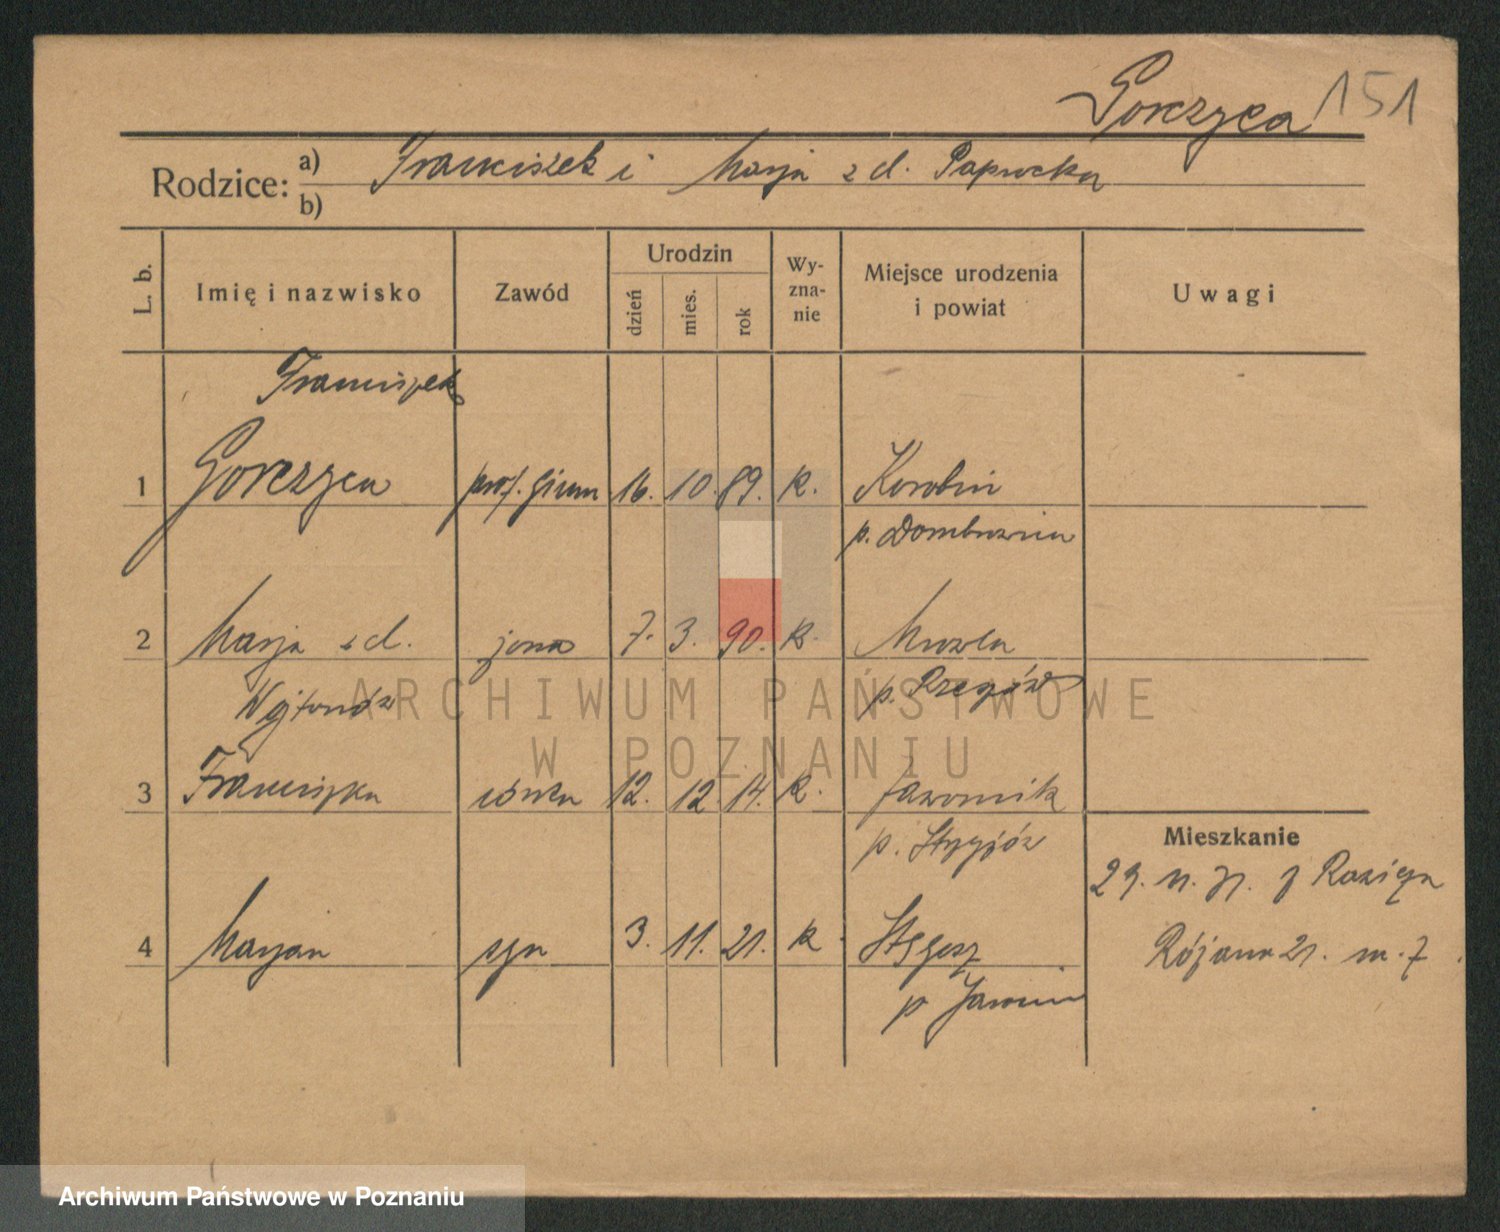 Gorczyca 151
Rodzice: a) Franciszek i Marja z d. Paprocka
b)
L. b.
Imię i nazwisko
Zawód
Urodzin
dzień
mies.
rok
Wy-
zna-
nie
Miejsce urodzenia
i powiat
Uwagi
Franciszek
1 Gorczyca prof. gimn 16. 10. 89. k. Korobin
p. Dombrowica
2 Marja z d. żona 7. 3. 90. k.
p. Rzeszów
3 Franciszka córka 12. 12. 14. k. Jawornik
p. Strzyżów
Mieszkanie
29. p. Razięga
4 Marjan syn 3. 11. 21. k
p Jarocin
Różana 21. m. 7
ARCHIWUM PAŃSTWOWE
W POZNANIU
Archiwum Państwowe w Poznaniu